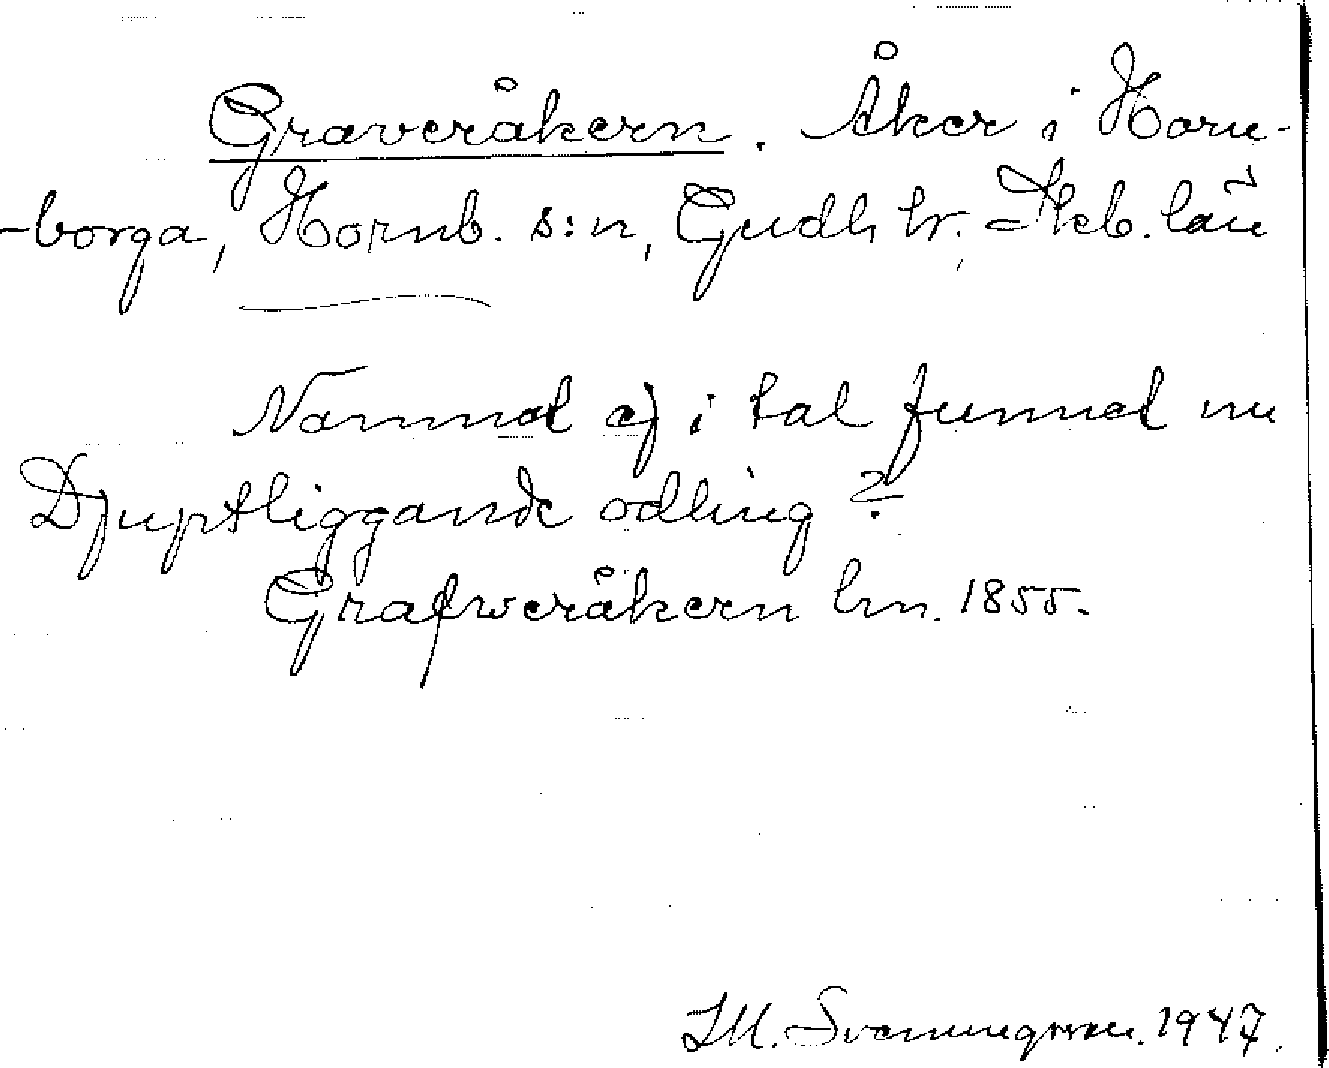 Graveråkern. Åker i Horn-
-borga, Hornb. s:n, Gudh. hr. Skb. län
Namnet ej i tal funnet nu
Djuptliggande odling?
Grafweråkern hm. 1855.
J.M. Svenningsson. 1947.